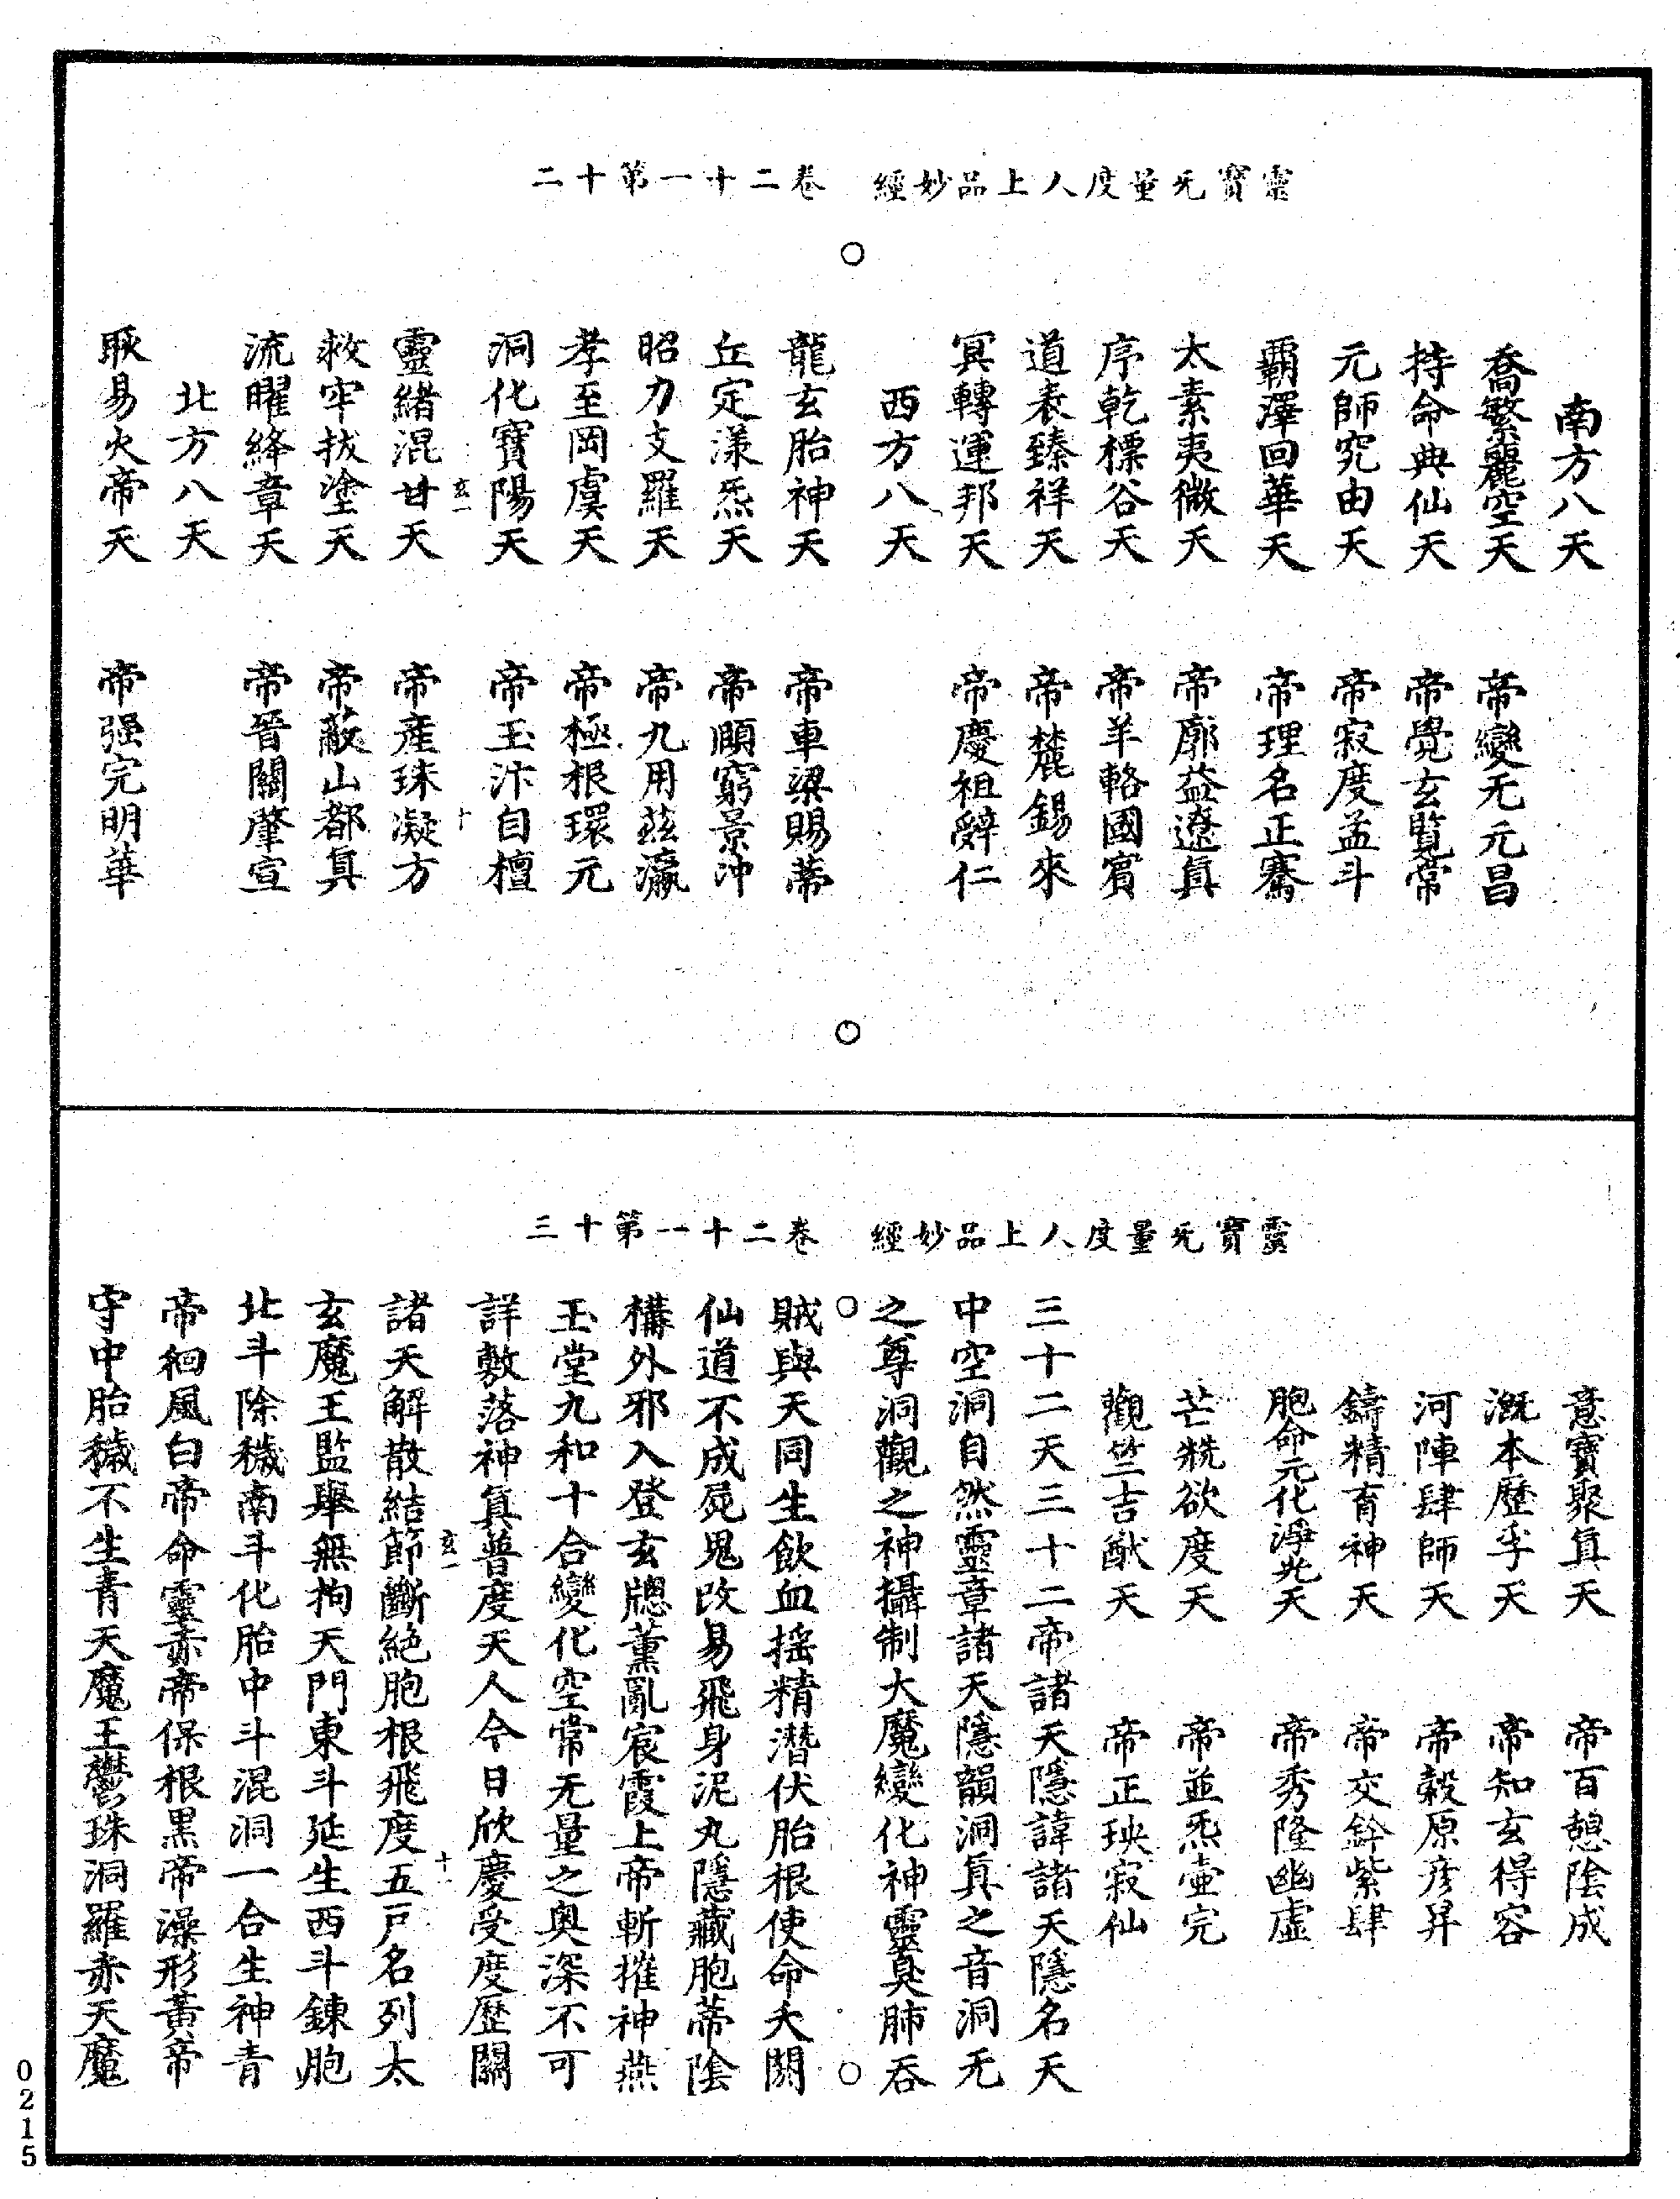 靈寶无量度人上品妙經　卷二十一第十二
南方八天
喬繁麗空天　帝變无元昌
持命典仙天　帝覺玄覽常
元師究由天　帝寂度孟斗
霸澤回華天　帝理名正騫
太素夷微天　帝廓益遼真
序乾標谷天　帝羊輅國賓
道表臻祥天　帝麓錫來
冥轉運邦天　帝慶祖辭仁
西方八天
龍玄胎神天　帝車梁賜蒂
丘定漾炁天　帝頤窮景沖
昭力支羅天　帝九用茲瀛
孝至岡虞天　帝極根環元
洞化寶陽天　帝玉汴自檀
玄一　十
靈緒混甘天　帝產珠凝方
救牢拔塗天　帝蔽山都真
流曜絳章天　帝晉關肇宣
北方八天
耿易火帝天　帝强完明華
靈寶无量度人上品妙經　卷二十一第十三
意寶聚真天　帝百憩陰成
溉本歷孚天　帝知玄得容
河陣肆師天　帝穀原彥昇
鑄精育神天　帝交鈴紫肆
胞命元化淨光天　帝秀隆幽虛
芒㲝欲度天　帝並炁壺完
觀竺吉猷天　帝正玦寂仙
三十二天三十二帝諸天隱諱諸天隱名天
中空洞自然靈章諸天隱韻洞真之音洞无
之尊洞觀之神攝制大魔變化神靈莫肺吞
賊與天同生飲血搖精潛伏胎根使命夭閼
仙道不成屍鬼改易飛身泥丸隱藏胞蒂陰
構外邪入登玄牕薰亂宸霞上帝斬摧神燕
玉堂九和十合變化空常无量之奧深不可
詳敷落神真普度天人今日欣慶受度歷關
玄一　十一
諸天解散結節斷絕胞根飛度五戶名列太
玄魔王監舉無拘天門東斗延生西斗錬胞
北斗除穢南斗化胎中斗混洞一合生神青
帝徊風白帝命靈赤帝保根黑帝澡形黃帝
守中胎穢不生青天魔王鬱珠洞羅赤天魔
0215